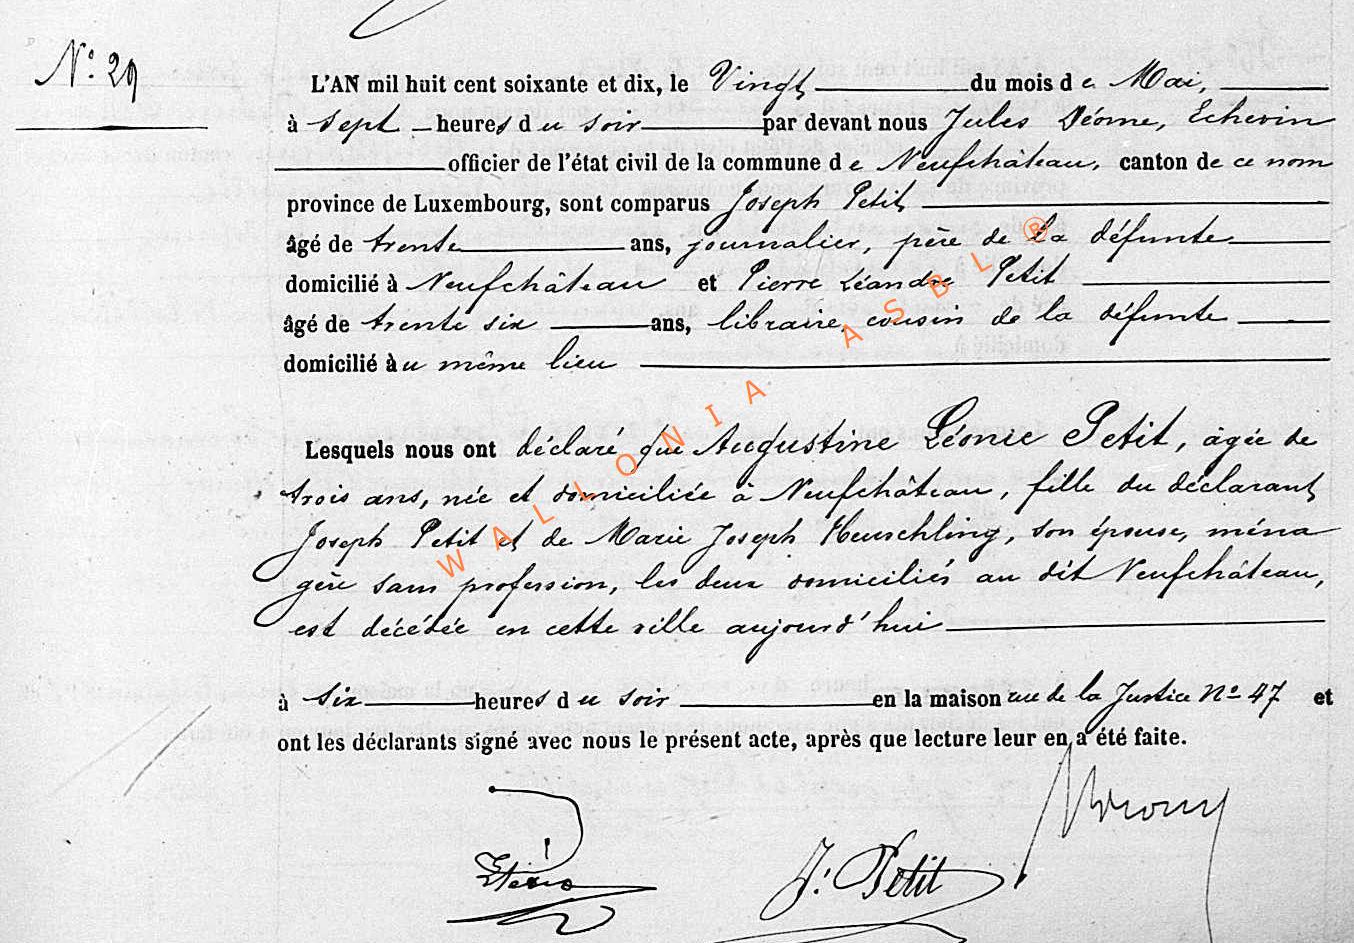 N.º 29
L'AN mil huit cent soixante et dix, le Vingt du mois de Mai,
à sept heures du soir par devant nous Jules Déome, Echevin
officier de l'état civil de la commune de Neufchâteau, canton de ce nom
province de Luxembourg, sont comparus Joseph Petit
âgé de trente ans, journalier, père de la défunte
domicilié à Neufchâteau et Pierre Léandre Petit
âgé de trente six ans, libraire, cousin de la défunte
domicilié au même lieu
Lesquels nous ont déclaré que Augustine Léonie Petit, âgée de
trois ans, née et domiciliée à Neufchâteau, fille du déclarant
Joseph Petit et de Marie Joseph Heuschling, son épouse, ména
gère sans profession, les deux domiciliés au dit Neufchâteau,
est décédée en cette ville aujourd'hui
à six heures du soir en la maison rue de la Justice Nº 47 et
ont les déclarants signé avec nous le présent acte, après que lecture leur en a été faite.
J. Petit
WALLONIA ASBL ®